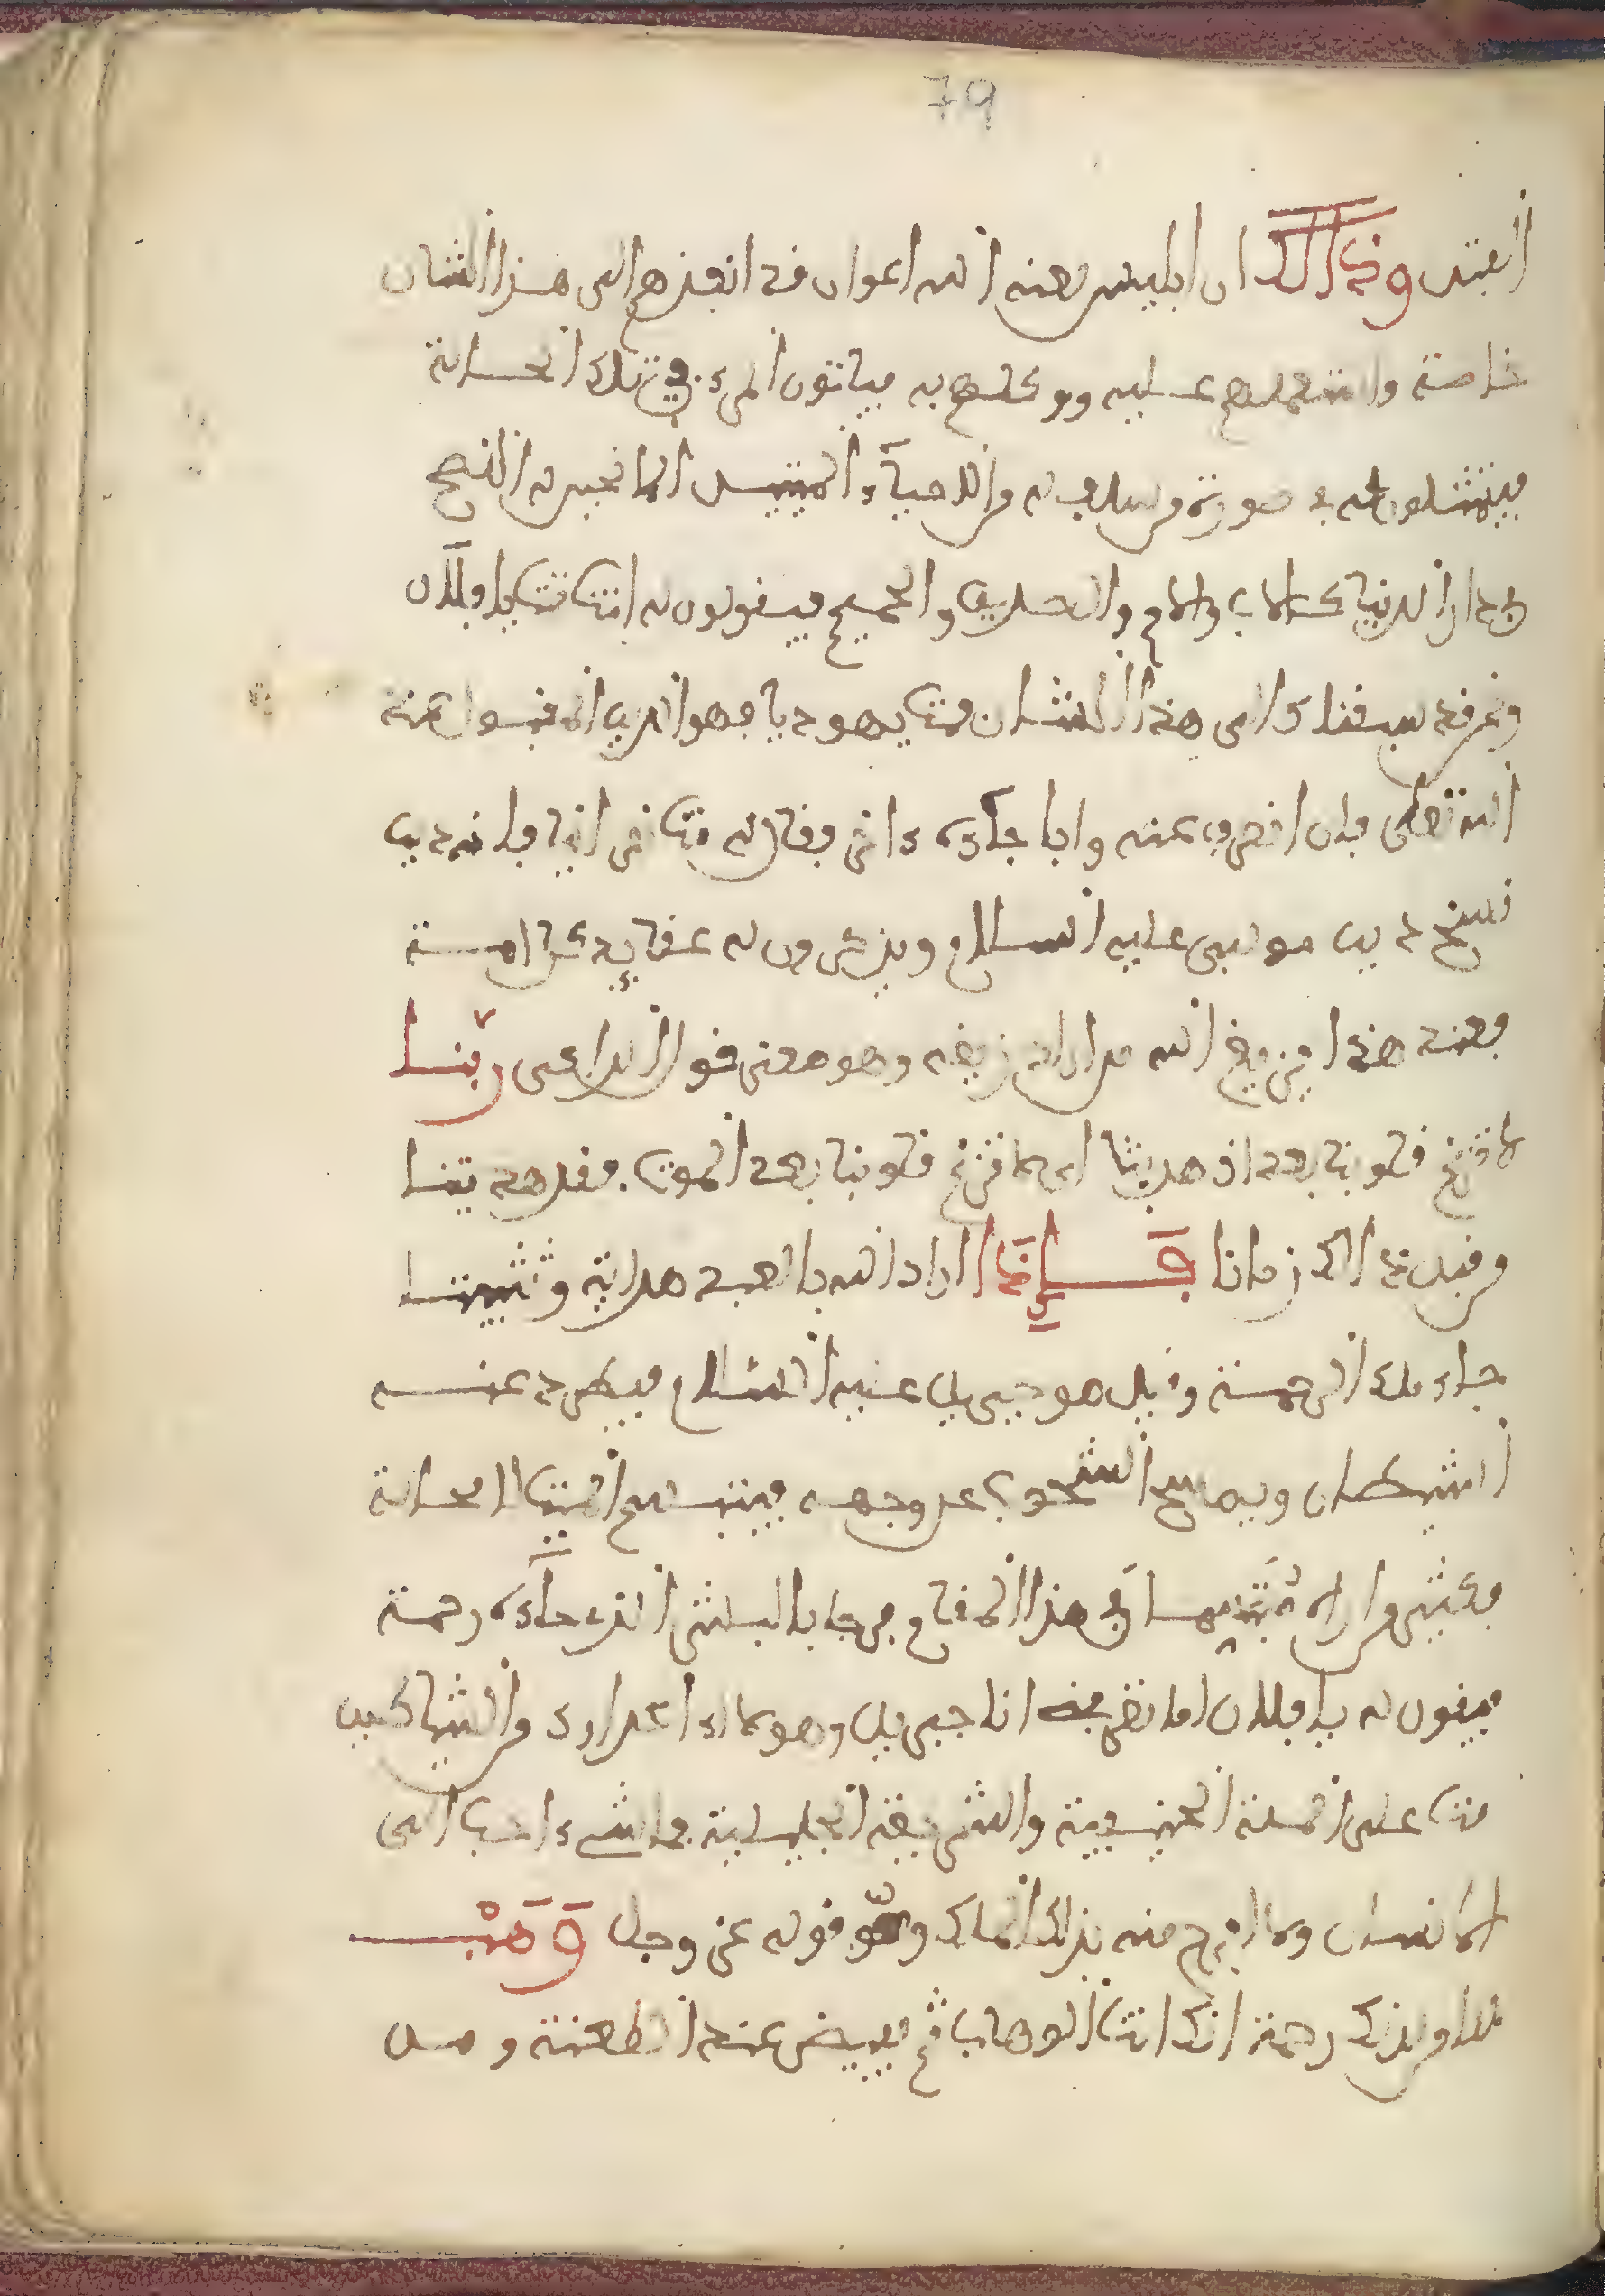 79
الفتن وذالك ان ابليس لعنه الله اعوان قد انفذهم الى هذا الشان
خاصة واستعملهم عليه ووكلهم به فياتون المرء في تلك الحالة
فيتمثلون له في صورة من سلف له من الاحياء الميتين الباغين له النصح
في دار الدنيا كالاب والام والصديق والحميم فيقولون له انت تموت يا فلان
ونحن قد سبقناك الى هذا الشان فمت يهوديا فهو الدين المقبول عند
الله تعلى فان انصرف عنهم وابا جاءه ءاخر وقال له مت نصرانيا فانه دين
نسخ دين موسى عليه السلام ويذكرون له عقايد كل ملة
فعند هذا يزيغ الله من اراد زيغه وهو معنى قول الله تعلى ربنا
لا تزغ قلوبنا بعد اذ هديتنا اي لا تزغ قلوبنا بعد الموت وقد هديتنا
من قبل ذالك زمانا فإذا اراد الله بالعبد هداية وتثبيتا
جاءه ملك الرحمة وقيل هو جبريل عليه السلام فيطرد عنه
الشيطان ويمسح الشحوب عن وجهه فيتبسم الميت لا محالة
وكثير من راه متبسما في هذا المقام فرحا بالبشير الذي جاءه رحمة
فيقول له يا فلان اما تعرفني انا جبريل وهولاء اعداؤك من الشياطين
مت على الملة الحنيفية والشريعة الجليلية فما شيء احب الى
الانسان ولا افرح منه بذلك الملك وهو قوله عز وجل وَهَبْ
لنا من لدنك رحمة انك انت الوهاب ثم يقبض عند الطعنة ومن